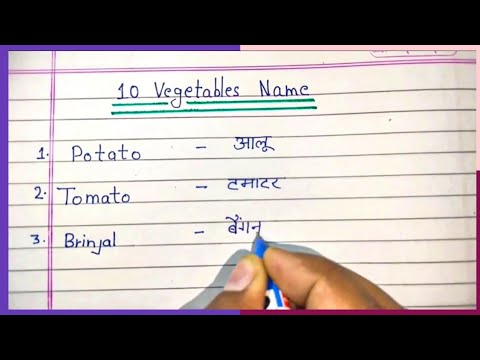 10 Vegetables Name
1. Potato - आलू
2. Tomato - टमाटर
3. Brinjal - बैंगन